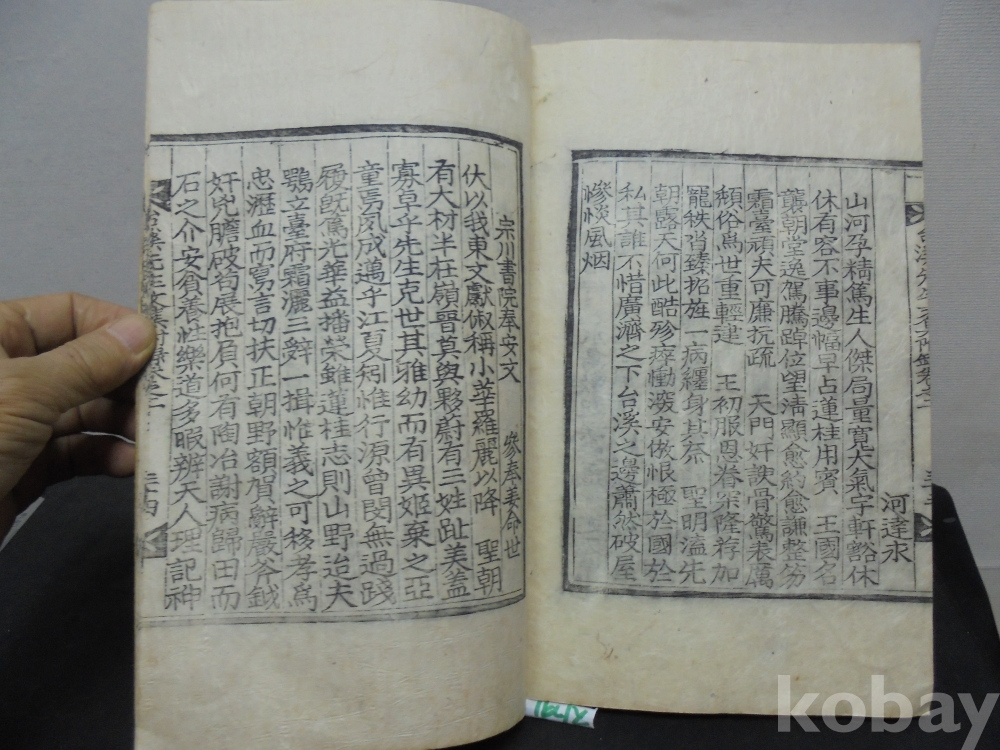 河達永
山河孕精篤生人傑局量寬大氣宇軒豁休
休有容不事邊幅早占蓮桂用賓 王國名
襲朝堂逸駕騰踔位望淸顯愈約愈謙整笏
霜臺頑夫可廉抗疏 天門奸諛骨驚表厲
頹俗爲世重輕逮 王初服恩眷深隆荐加
寵秩胥臻拓旌一病纏身其奈 聖明溘先
朝露天何此酷殄瘁慟潑安倣恨極於國於
私其誰不惜廣濟之下台溪之邊蕭然破屋
慘惔風烟
宗川書院奉安文 參奉姜命世
伏以我東文獻俶稱小華羅麗以降 聖朝
有大材半在嶺晉奠與夥蔚有三姓趾美蓋
寡卓乎先生克世其雅幼而有異姬棄之亞
童焉夙成邁乎江夏矧惟行源曾閔無過踐
履旣篤光華益播榮雖蓮桂志則山野迨夫
鶚立臺府霜灑三辭一揖惟義之可移孝爲
忠瀝血而寫言切扶正朝野額賀辭嚴斧鉞
奸兇膽破若展抱負何有陶冶謝病歸田而
石之介安貧養性樂道多暇辨天人理記神
台溪先生文集附錄卷之二 三十四
kobay